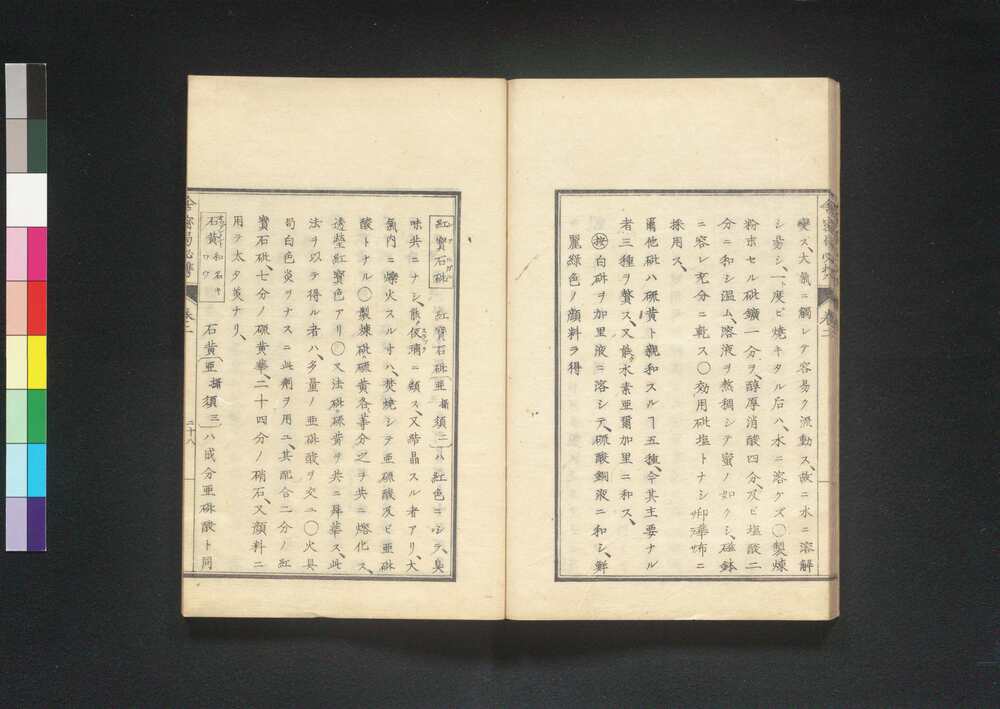 變ズ、大氣ニ觸レテ容易ク流動ス、故ニ水ニ溶解
シ易シ、一度ビ燒キタル后ハ、水ニ溶ケズ〇製煉
粉末セル砒鑛一分ヲ、醇厚消酸四分、及ビ塩酸二
分ニ和シ温ム、溶液ヲ熬稠シテ蜜ノ如クシ、磁鉢
ニ容レ充分ニ乾ス〇効用砒塩トナシ
採用ス、
爾他砒ハ硫黄ト親和スルヿ五種、今其主要ナル
者三種ヲ贅ス、又能水素亜爾加里ニ和ス、
按白砒ヲ加里液ニ溶シテ、硫酸銅液ニ和シ、鮮
麗緑色ノ顔料ヲ得
卷二
紅寶石砒 紅寶石砒亜ハ紅色ニシテ、臭
味共ニナシ、能玻璃ニ類ス、又結晶スル者アリ、大
氣内ニ爍火スル寸ハ、焚燒シテ亜硫酸及ビ亜砒
酸トナル〇製煉砒、硫黄各等分之ヲ共ニ熔化ス、
透瑩紅寶色アリ〇又法砒硫黄ヲ共ニ昇華ス、此
法ヲ以テ得ル者ハ、多量ノ亜砒酸ヲ交ユ〇火具
司白色炎ヲナスニ此劑ヲ用ユ、其配合二分ノ紅
寶石砒、七分ノ硫黄華、二十四分ノ硝石、又顔料ニ
用ヲ太タ美ナリ、
石黄 石黄亜ハ成分亜砒酸ト同
卷二
二十八